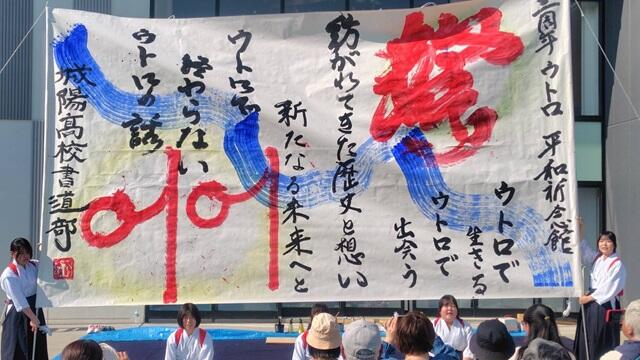 三周年 ウトロ 平和祈念館
繋
ウトロで
生きる
ウトロで
出会う
紡がれてきた歴史と想い
新たなる未来へと
ウトロで
終わらない
ウトロの話
城陽高校書道部